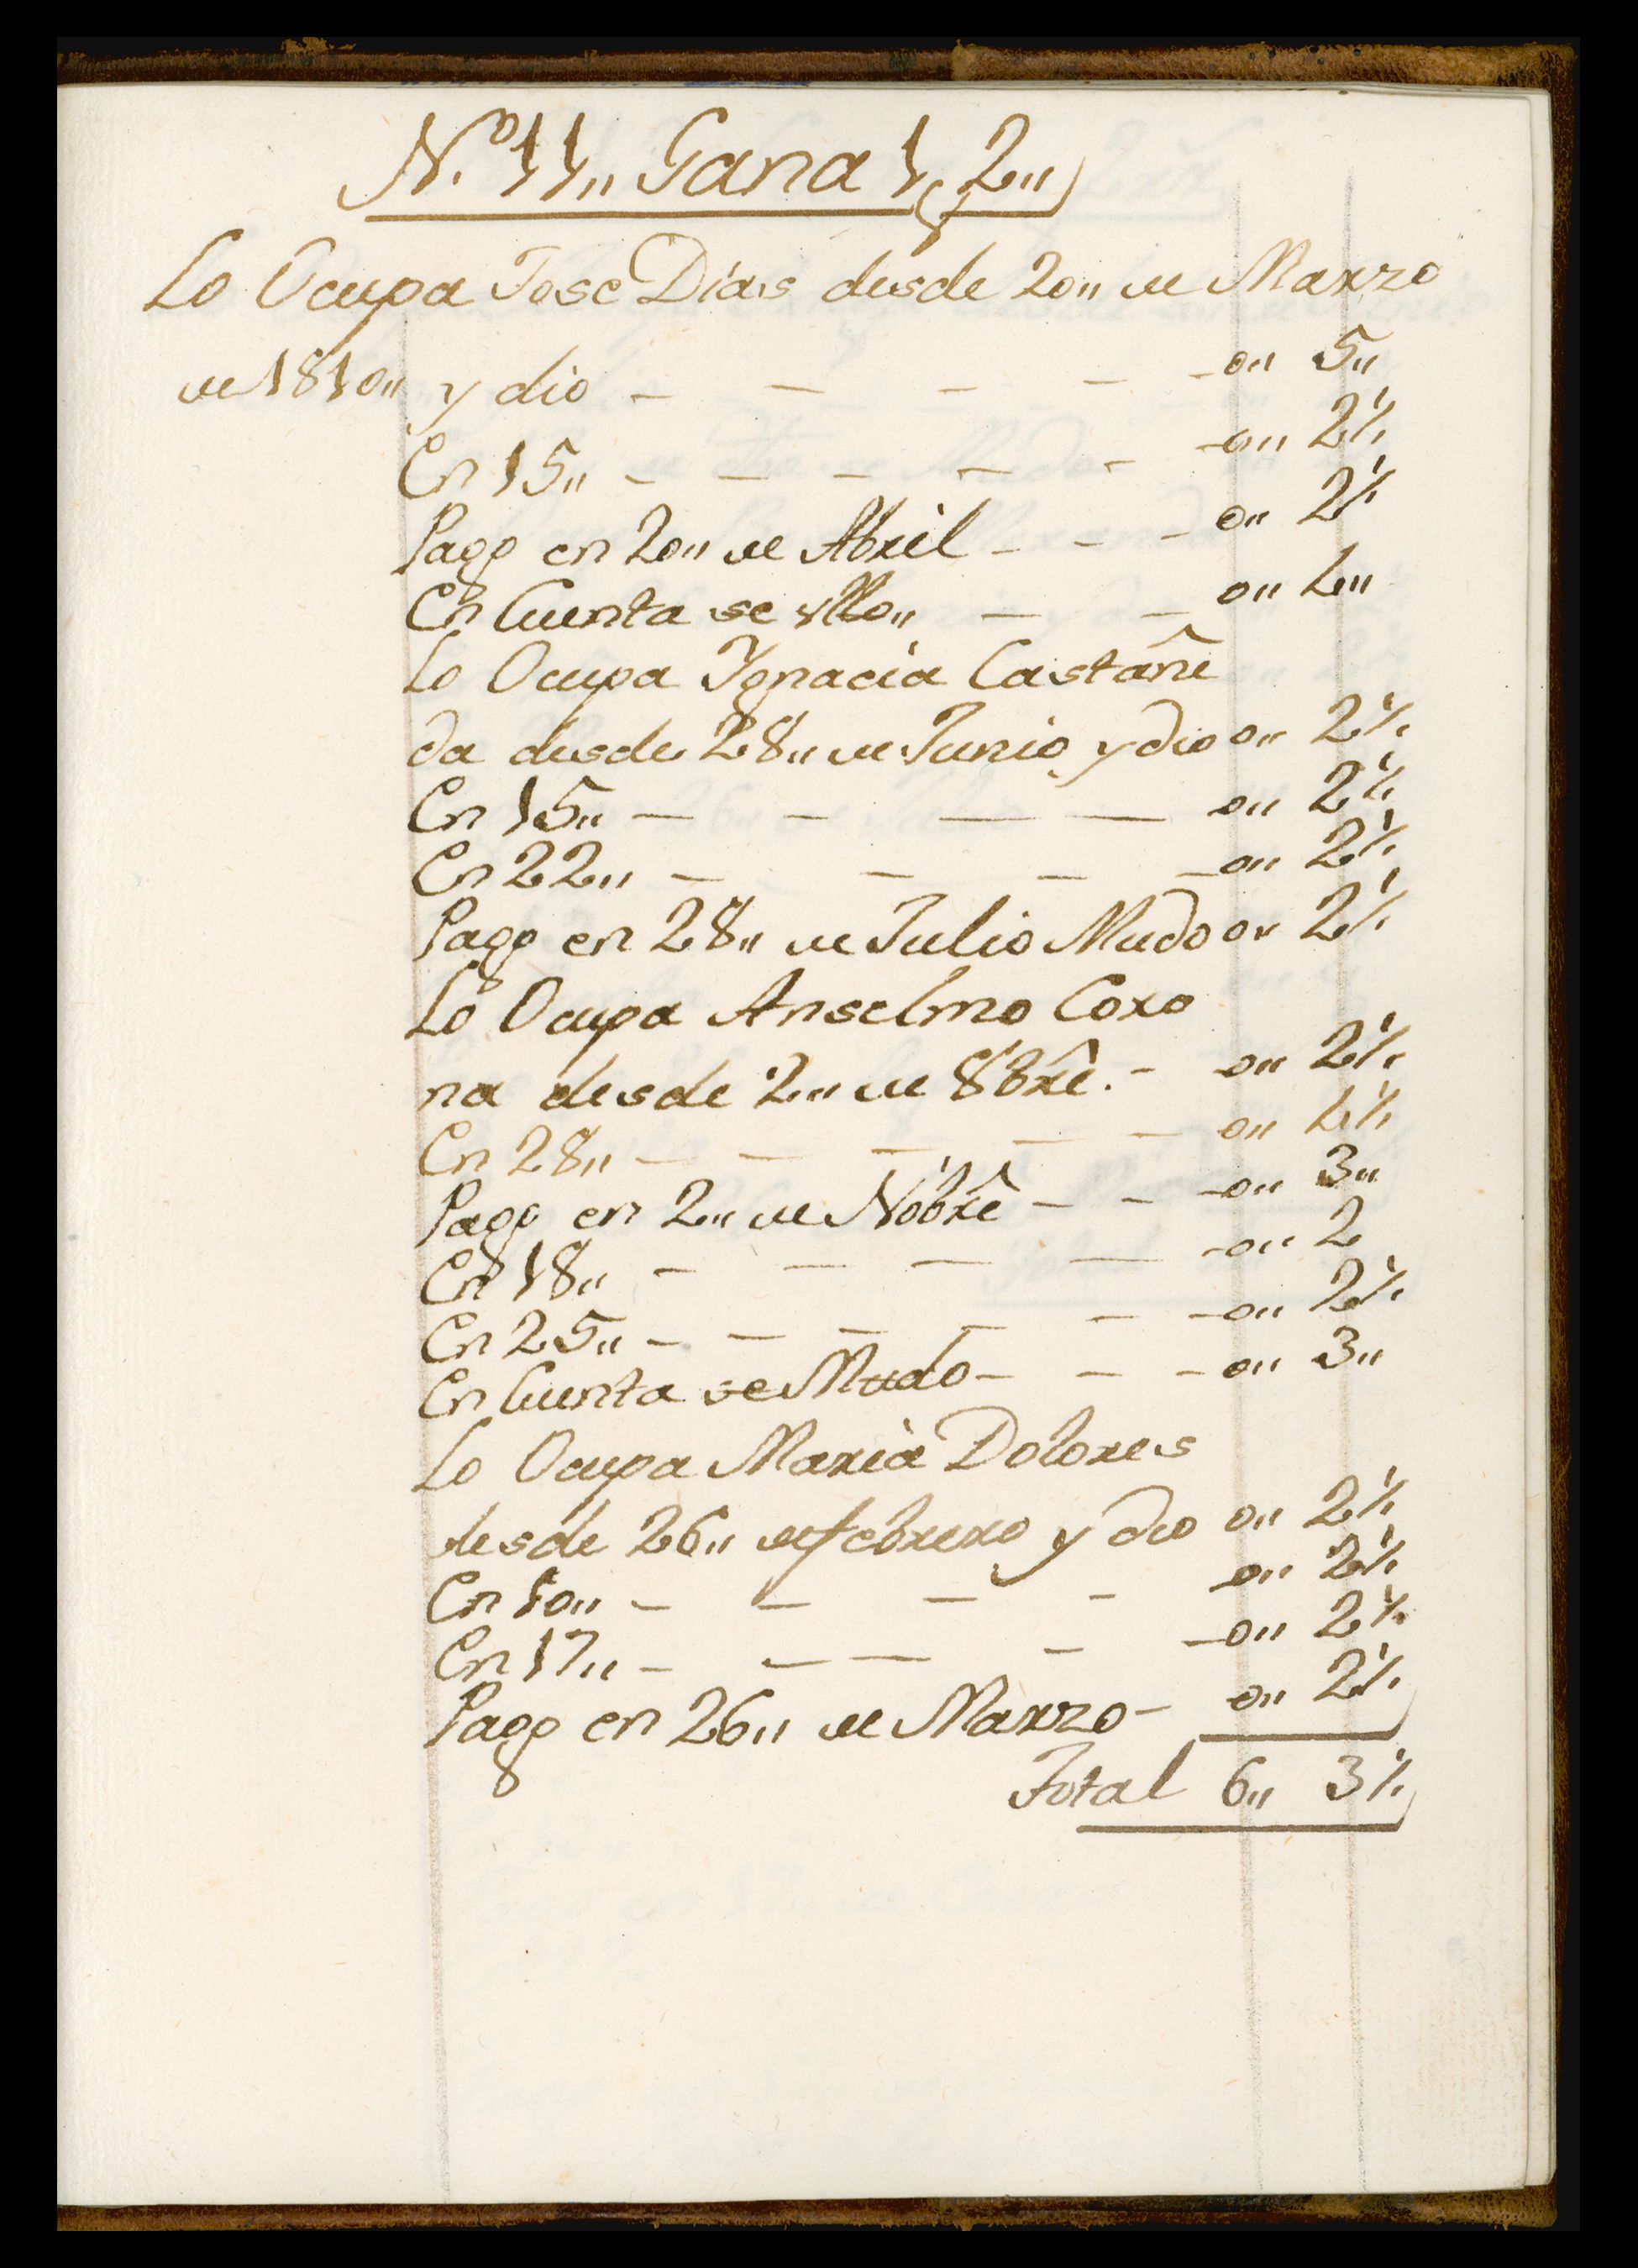 N.º 11,, Gana 1, 2,,
Lo Ocupa Jose Dias desde 20,, de Marzo
de 1810,, y dio - - - - - 0,, 5,,
En 15,, - - - - - - 0,, 2½
Pago en 20,, de Abril - - - 0,, 2½
En Cuenta se - - 0,, 4,,
Lo Ocupa Ygnacia Castañe
da desde 28,, de Junio y dio 0,, 2½
En 15,, - - - - 0,, 2½
En 22,, - - - - 0,, 2½
Pago en 28,, de Julio Mudo 0,, 2½
Lo Ocupa Anselmo Coro
na desde 2,, de 8bre. - 0,, 2½
En 28,, - - - - - 0,, 4½
Pago en 2,, de Nobre - - - 0,, 3,,
En 18,, - - - - - 0,, 2
En 25,, - - - - - - 0,, 2½
En Cuenta se Mudo - - - 0,, 3,,
Lo Ocupa Maria Dolores
desde 26,, de febrero y dio 0,, 2½
En 10,, - - - - 0,, 2½
En 17,, - - - - - 0,, 2½
Pago en 26,, de Marzo - 0,, 2½
Total 6,, 3½